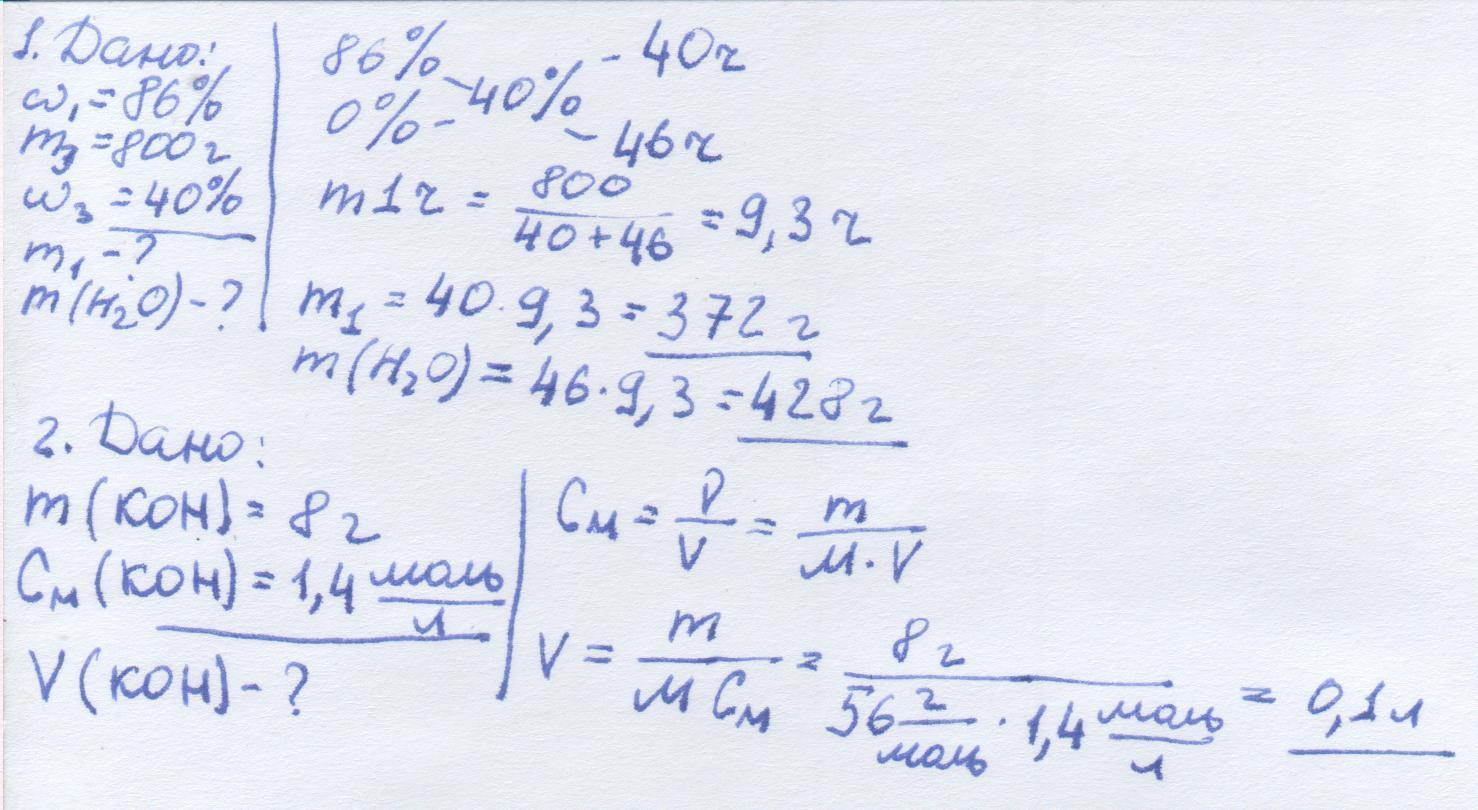 1. Дано:
ω₁ = 86%
m₃ = 800г
ω₃ = 40%
m₁ - ?
m(H₂O) - ?
86% - 40ч
40%
0% - 46ч
m1ч = 800/(40+46) = 9,3 г
m₁ = 40·9,3 = 372 г
m(H₂O) = 46·9,3 = 428 г
2. Дано:
m(KOH) = 8 г
Cм(KOH) = 1,4 моль/л
V(KOH) - ?
Cм = ν/V = m/(M·V)
V = m/(M Cм) = 8 г/(56 г/моль · 1,4 моль/л) = 0,1 л